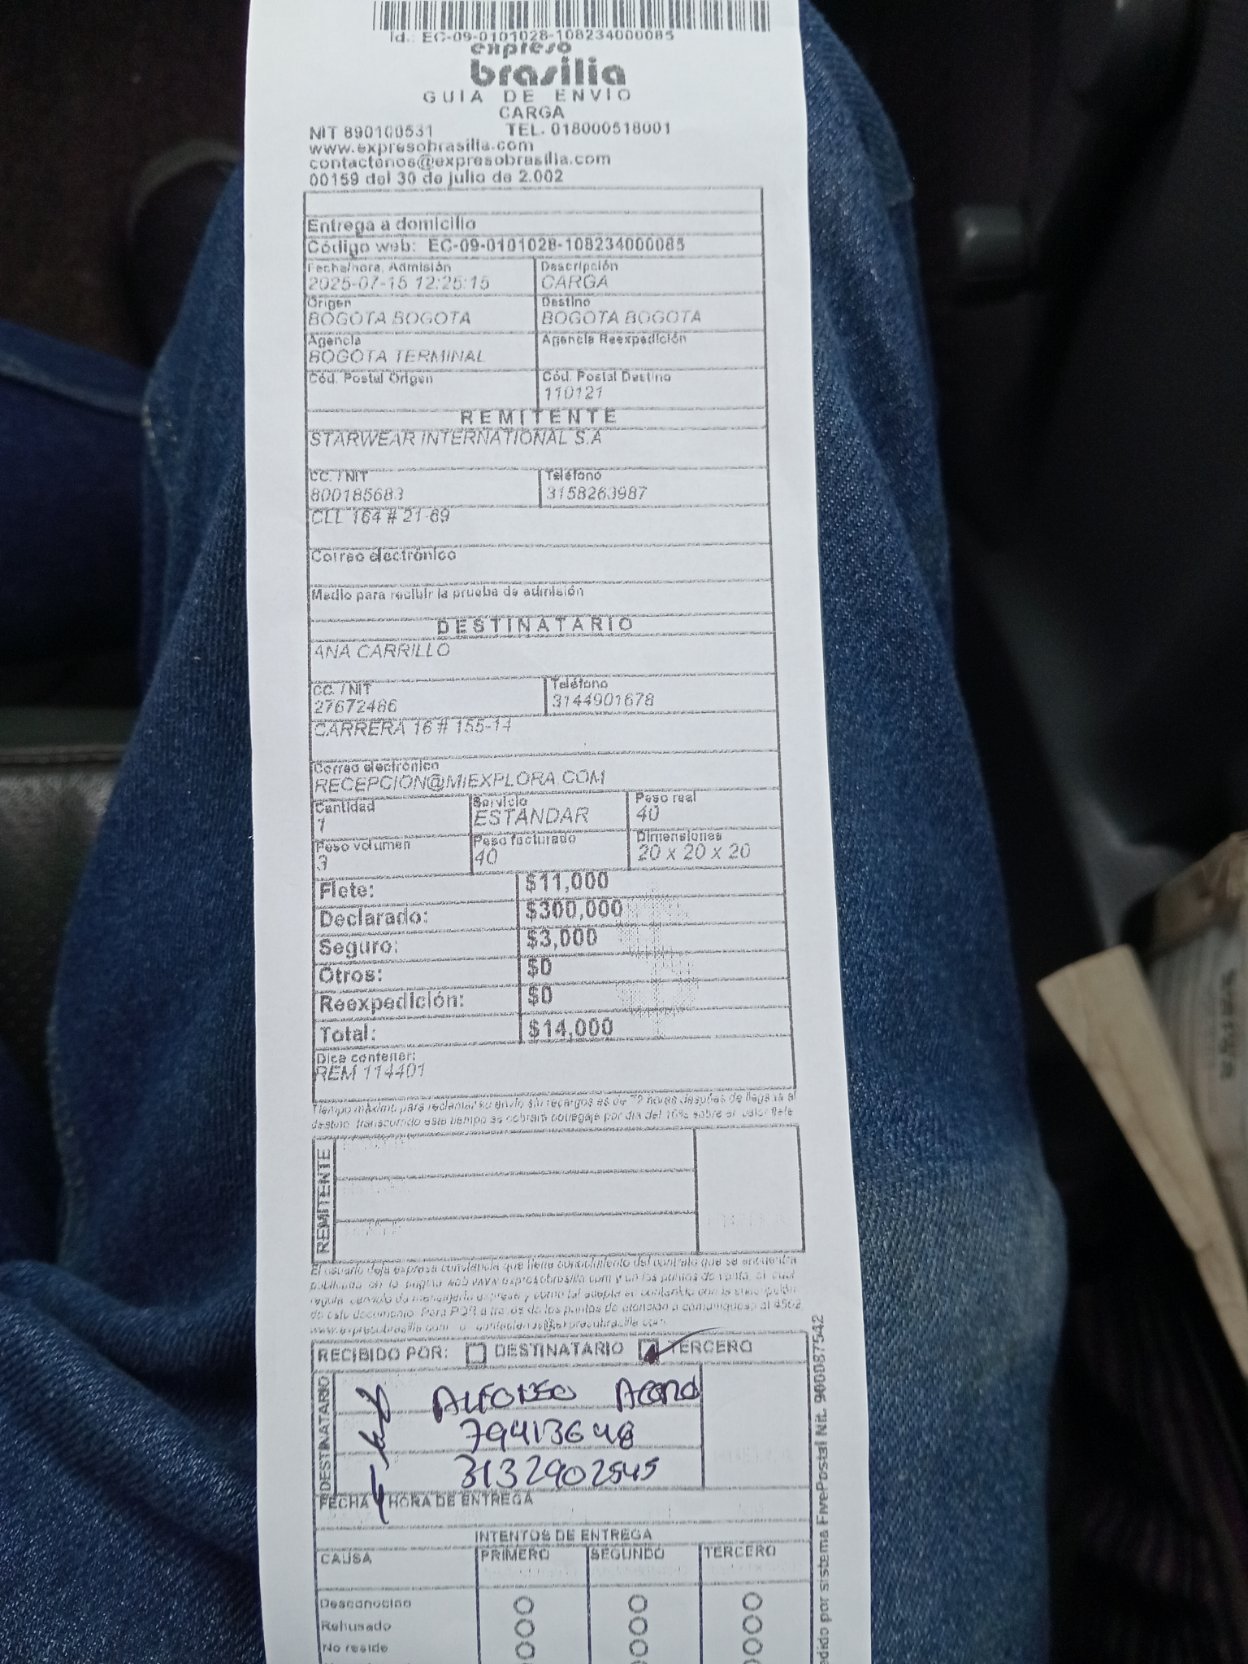 Id.: EC-09-0101028-108234000085
expreso
brasilia
GUIA DE ENVIO
CARGA
NIT 890100531 TEL. 018000518001
www.expresobrasilia.com
contactenos@expresobrasilia.com
00159 del 30 de julio de 2.002
Entrega a domicilio
Código web: EC-09-0101028-108234000085
Fecha/hora. Admisión Descripción
2025-07-15 12:25:15 CARGA
Origen Destino
BOGOTA BOGOTA BOGOTA BOGOTA
Agencia Agencia Reexpedición
BOGOTA TERMINAL
Cód. Postal Origen Cód. Postal Destino
110121
REMITENTE
STARWEAR INTERNATIONAL S.A
CC. / NIT Teléfono
800185683 3158263987
CLL 164 # 21-69
Correo electrónico
Medio para recibir la prueba de admisión
DESTINATARIO
ANA CARRILLO
CC. / NIT Teléfono
27672486 3144901678
CARRERA 16 # 155-14
Correo electrónico
RECEPCION@MIEXPLORA.COM
Cantidad Servicio Peso real
1 ESTANDAR 40
Peso volumen Peso facturado Dimensiones
3 40 20 x 20 x 20
Flete: $11,000
Declarado: $300,000
Seguro: $3,000
Otros: $0
Reexpedición: $0
Total: $14,000
Dice contener:
REM 114401
Tiempo máximo para reclamar su envío sin recargos es de 72 horas después de llegada al
destino, transcurrido este tiempo se cobrará bodegaje por día del 10% sobre el valor flete
REMITENTE
El usuario deja expresa constancia que tiene conocimiento del contrato que se encuentra
publicado en la página web www.expresobrasilia.com y en los puntos de venta, el cual
regula
de este documento. Para PQR a través de los puntos de atención o comuníquese al
www.expresobrasilia.com
RECIBIDO POR: DESTINATARIO TERCERO
DESTINATARIO
ALFONSO
79413648
3132902545
FECHA Y HORA DE ENTREGA
INTENTOS DE ENTREGA
CAUSA PRIMERO SEGUNDO TERCERO
Desconocido
Rehusado
No reside
edido por sistema FivePostal Nit. 900087542